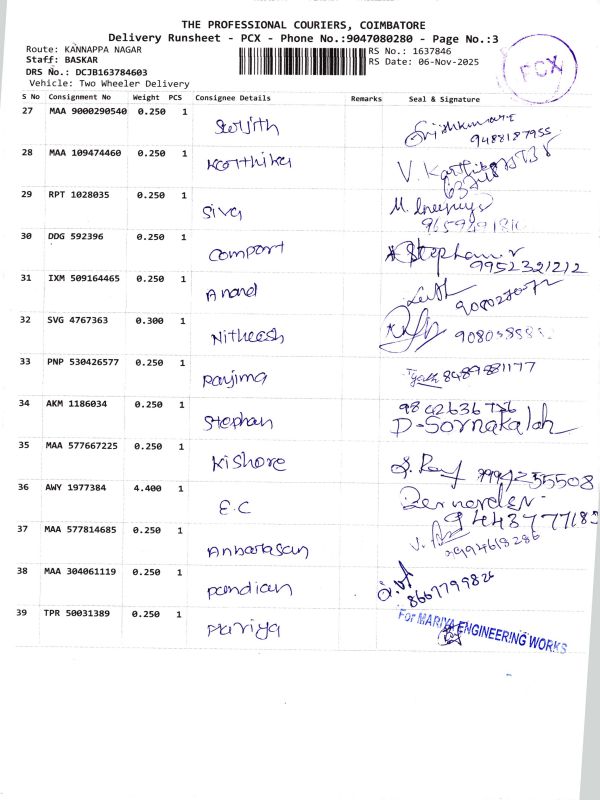 THE PROFESSIONAL COURIERS, COIMBATORE
Delivery Runsheet - PCX - Phone No.:9047080280 - Page No.:3
Route: KANNAPPA NAGAR
RS No.: 1637846
Staff: BASKAR
RS Date: 06-Nov-2025
DRS No.: DCJB163784603
Vehicle: Two Wheeler Delivery
PCX
S No Consignment No Weight PCS Consignee Details Remarks Seal & Signature
27 MAA 9000290540 0.250 1
9488187955
28 MAA 109474460 0.250 1 Karthika V. Karthika
29 RPT 1028035 0.250 1 Siva
30 DDG 592396 0.250 1 Comport Stephan
9952321212
31 IXM 509164465 0.250 1 Anand
32 SVG 4767363 0.300 1 Nitheesh
33 PNP 530426577 0.250 1 8489881177
34 AKM 1186034 0.250 1 Stephan 9842636736
D-Sornakalah
35 MAA 577667225 0.250 1 Kishore
36 AWY 1977384 4.400 1 E.C
37 MAA 577814685 0.250 1 Anbarasan
9994618286
38 MAA 304061119 0.250 1 pandian
8667799826
39 TPR 50031389 0.250 1 Mariya For MARIYA ENGINEERING WORKS